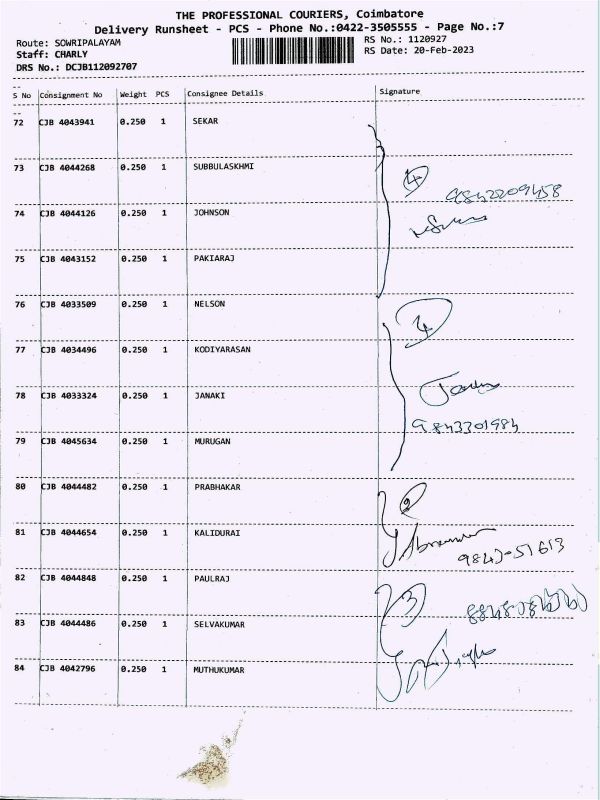 THE PROFESSIONAL COURIERS, Coimbatore
Delivery Runsheet - PCS - Phone No.:0422-3505555 - Page No.:7
Route: SOWRIPALAYAM RS No.: 1120927
Staff: CHARLY RS Date: 20-Feb-2023
DRS No.: DCJB112092707
S No Consignment No Weight PCS Consignee Details Signature
72 CJB 4043941 0.250 1 SEKAR
73 CJB 4044268 0.250 1 SUBBULASKHMI
4
9842209458
74 CJB 4044126 0.250 1 JOHNSON
75 CJB 4043152 0.250 1 PAKIARAJ
76 CJB 4033509 0.250 1 NELSON
4
77 CJB 4034496 0.250 1 KODIYARASAN
78 CJB 4033324 0.250 1 JANAKI
9843301984
79 CJB 4045634 0.250 1 MURUGAN
80 CJB 4044482 0.250 1 PRABHAKAR
2
81 CJB 4044654 0.250 1 KALIDURAI
82 CJB 4044848 0.250 1 PAULRAJ
3
83 CJB 4044486 0.250 1 SELVAKUMAR
84 CJB 4042796 0.250 1 MUTHUKUMAR